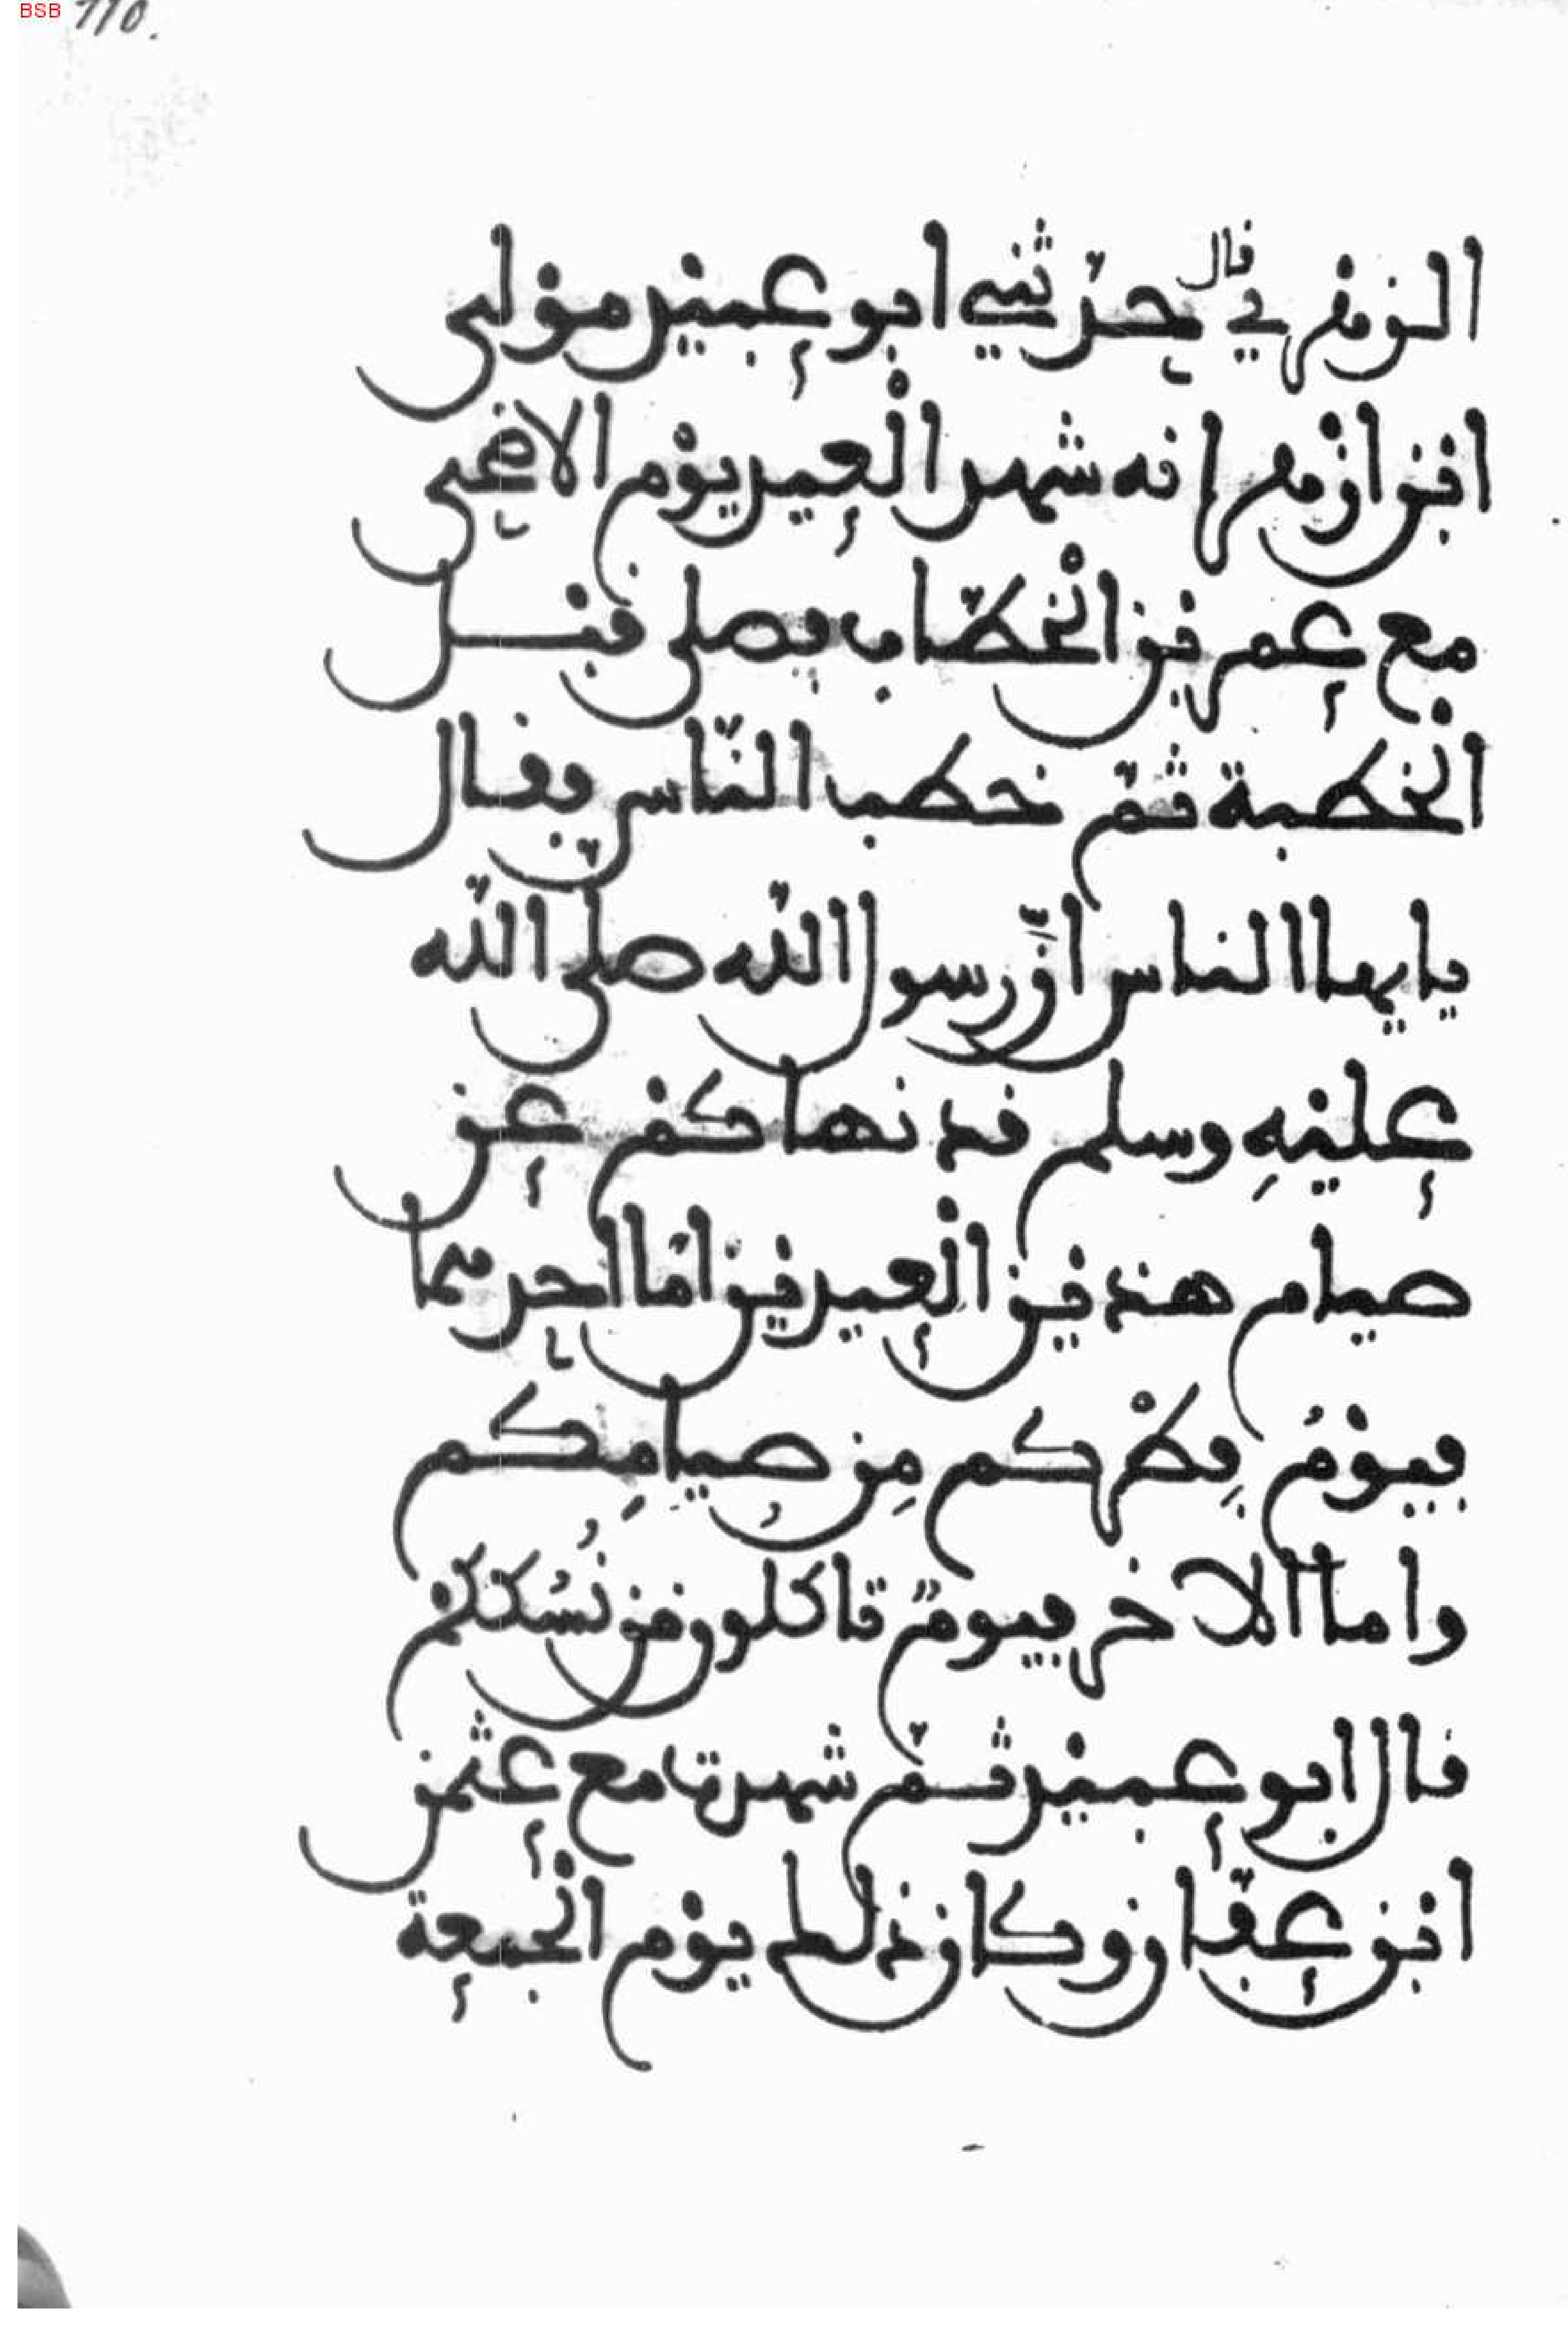 BSB 110.
الزهري قال حدّثني ابو عبيْد موْلى
ابْن ازْهر انه شهد الْعيد يوْم الاضحى
مع عمر بن الْخطّاب فصلى قبْل
الْخطبة ثمّ خطب النّاس فقال
يايها الناس انّ رسول اللّه صلّى اللّه
عليْهِ وسلم قد نهاكمْ عن
صيام هذين الْعيدين امّا احدهما
فيوْمُ فِطْركم مِن صِيامِكم
واما الاخر فيومٌ تاكلون من نُسُككمْ
قال ابو عبيْد ثمّ شهدتها مع عثمن
ابْن عفّان وكان ذلك يوْم الْجمعة